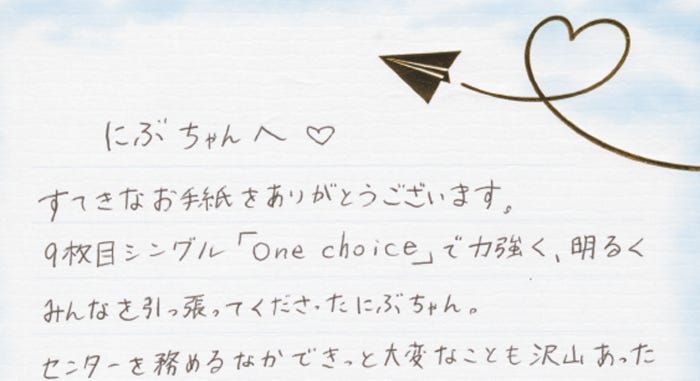 にぶちゃんへ♡
すてきなお手紙をありがとうございます。
9枚目シングル「One choice」で力強く、明るく
みんなを引っ張ってくださったにぶちゃん。
センターを務めるなかできっと大変なことも沢山あった